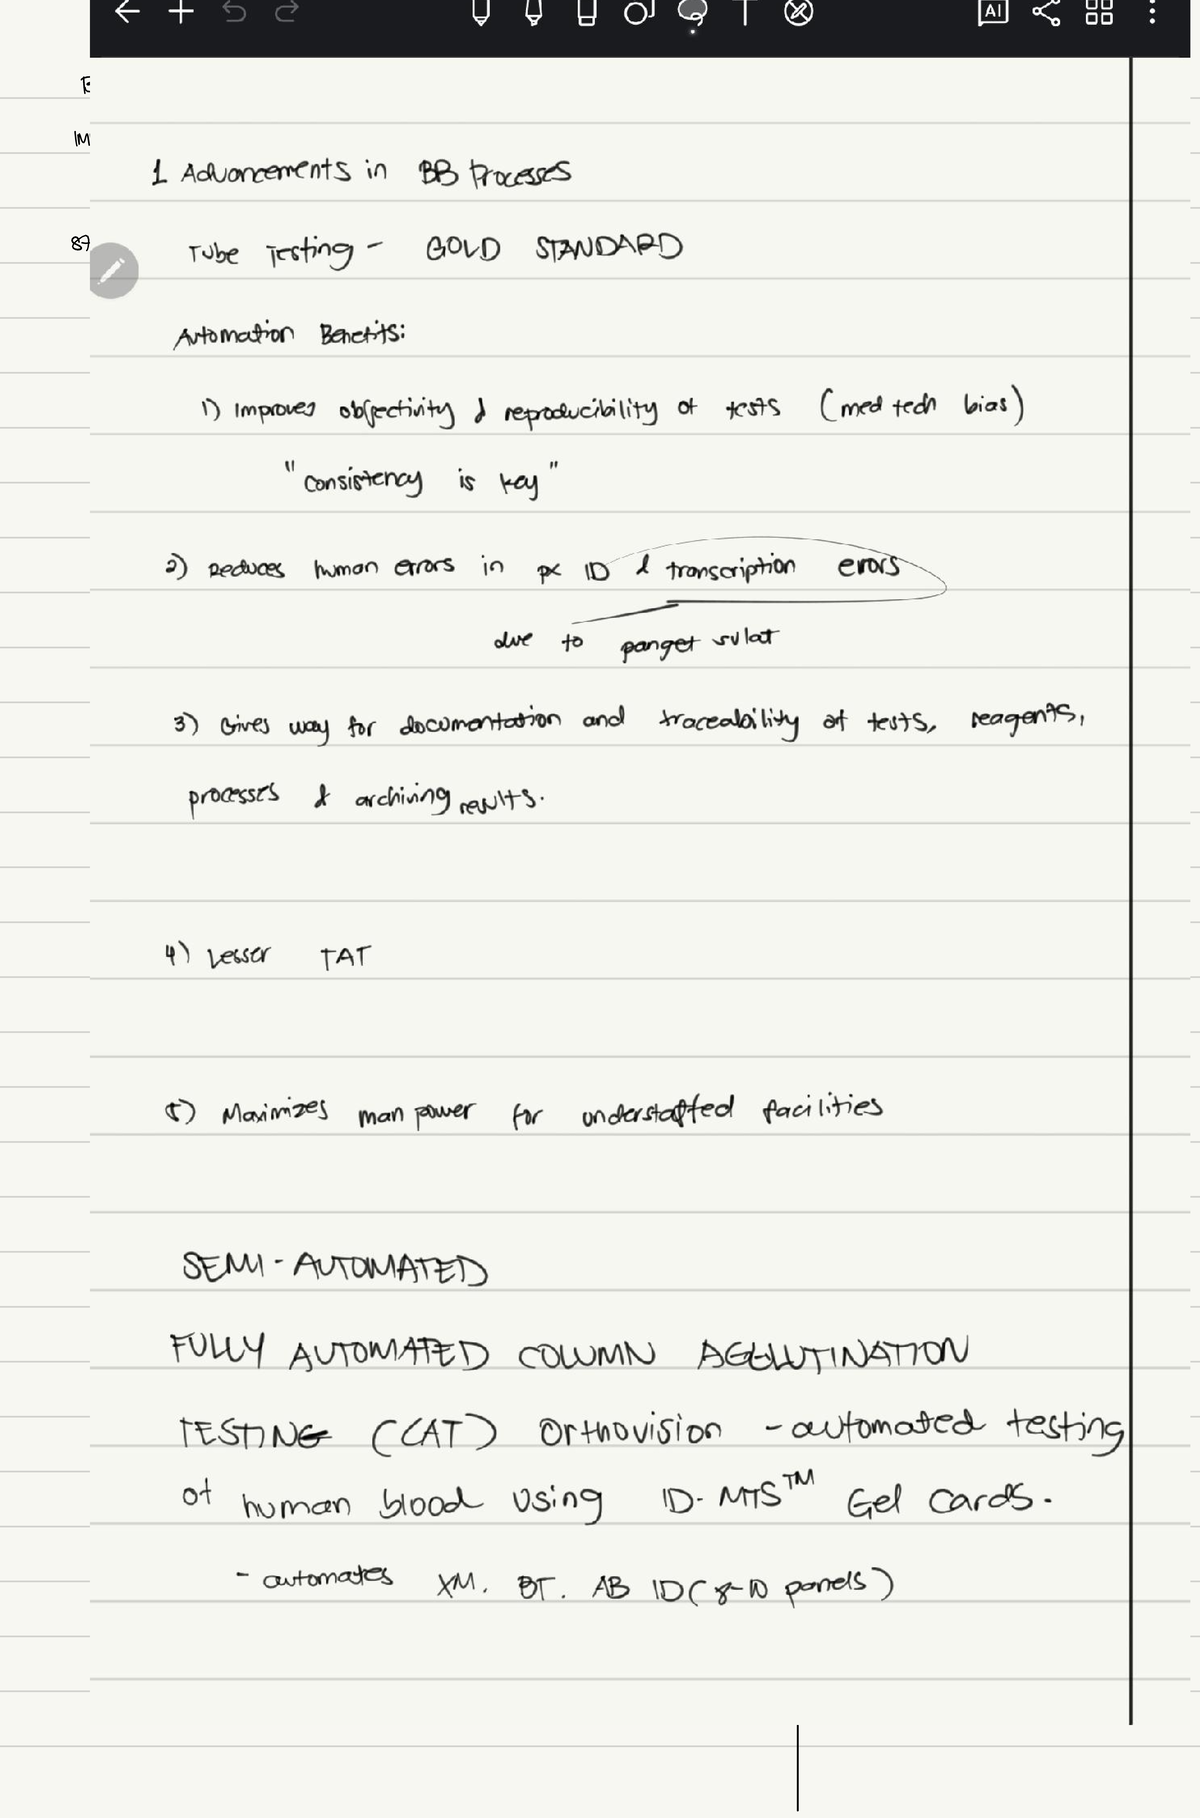 AI
T
IM
1 Advancements in BB Processes
87
Tube Testing - GOLD STANDARD
Automation Benefits:
1) Improves objectivity & reproducibility of tests (med tech bias)
"consistency is key"
2) Reduces human errors in px ID & transcription erors
due to panget sulat
3) Gives way for documentation and traceability of tests, reagents,
processes & archiving results.
4) Lesser TAT
5) Maximizes man power for understaffed facilities
SEMI-AUTOMATED
FULLY AUTOMATED COLUMN AGGLUTINATION
TESTING (CAT) Orthovision - automated testing
of human blood using ID-MTS™ Gel Cards.
- automates XM. BT. AB ID (8-10 panels)